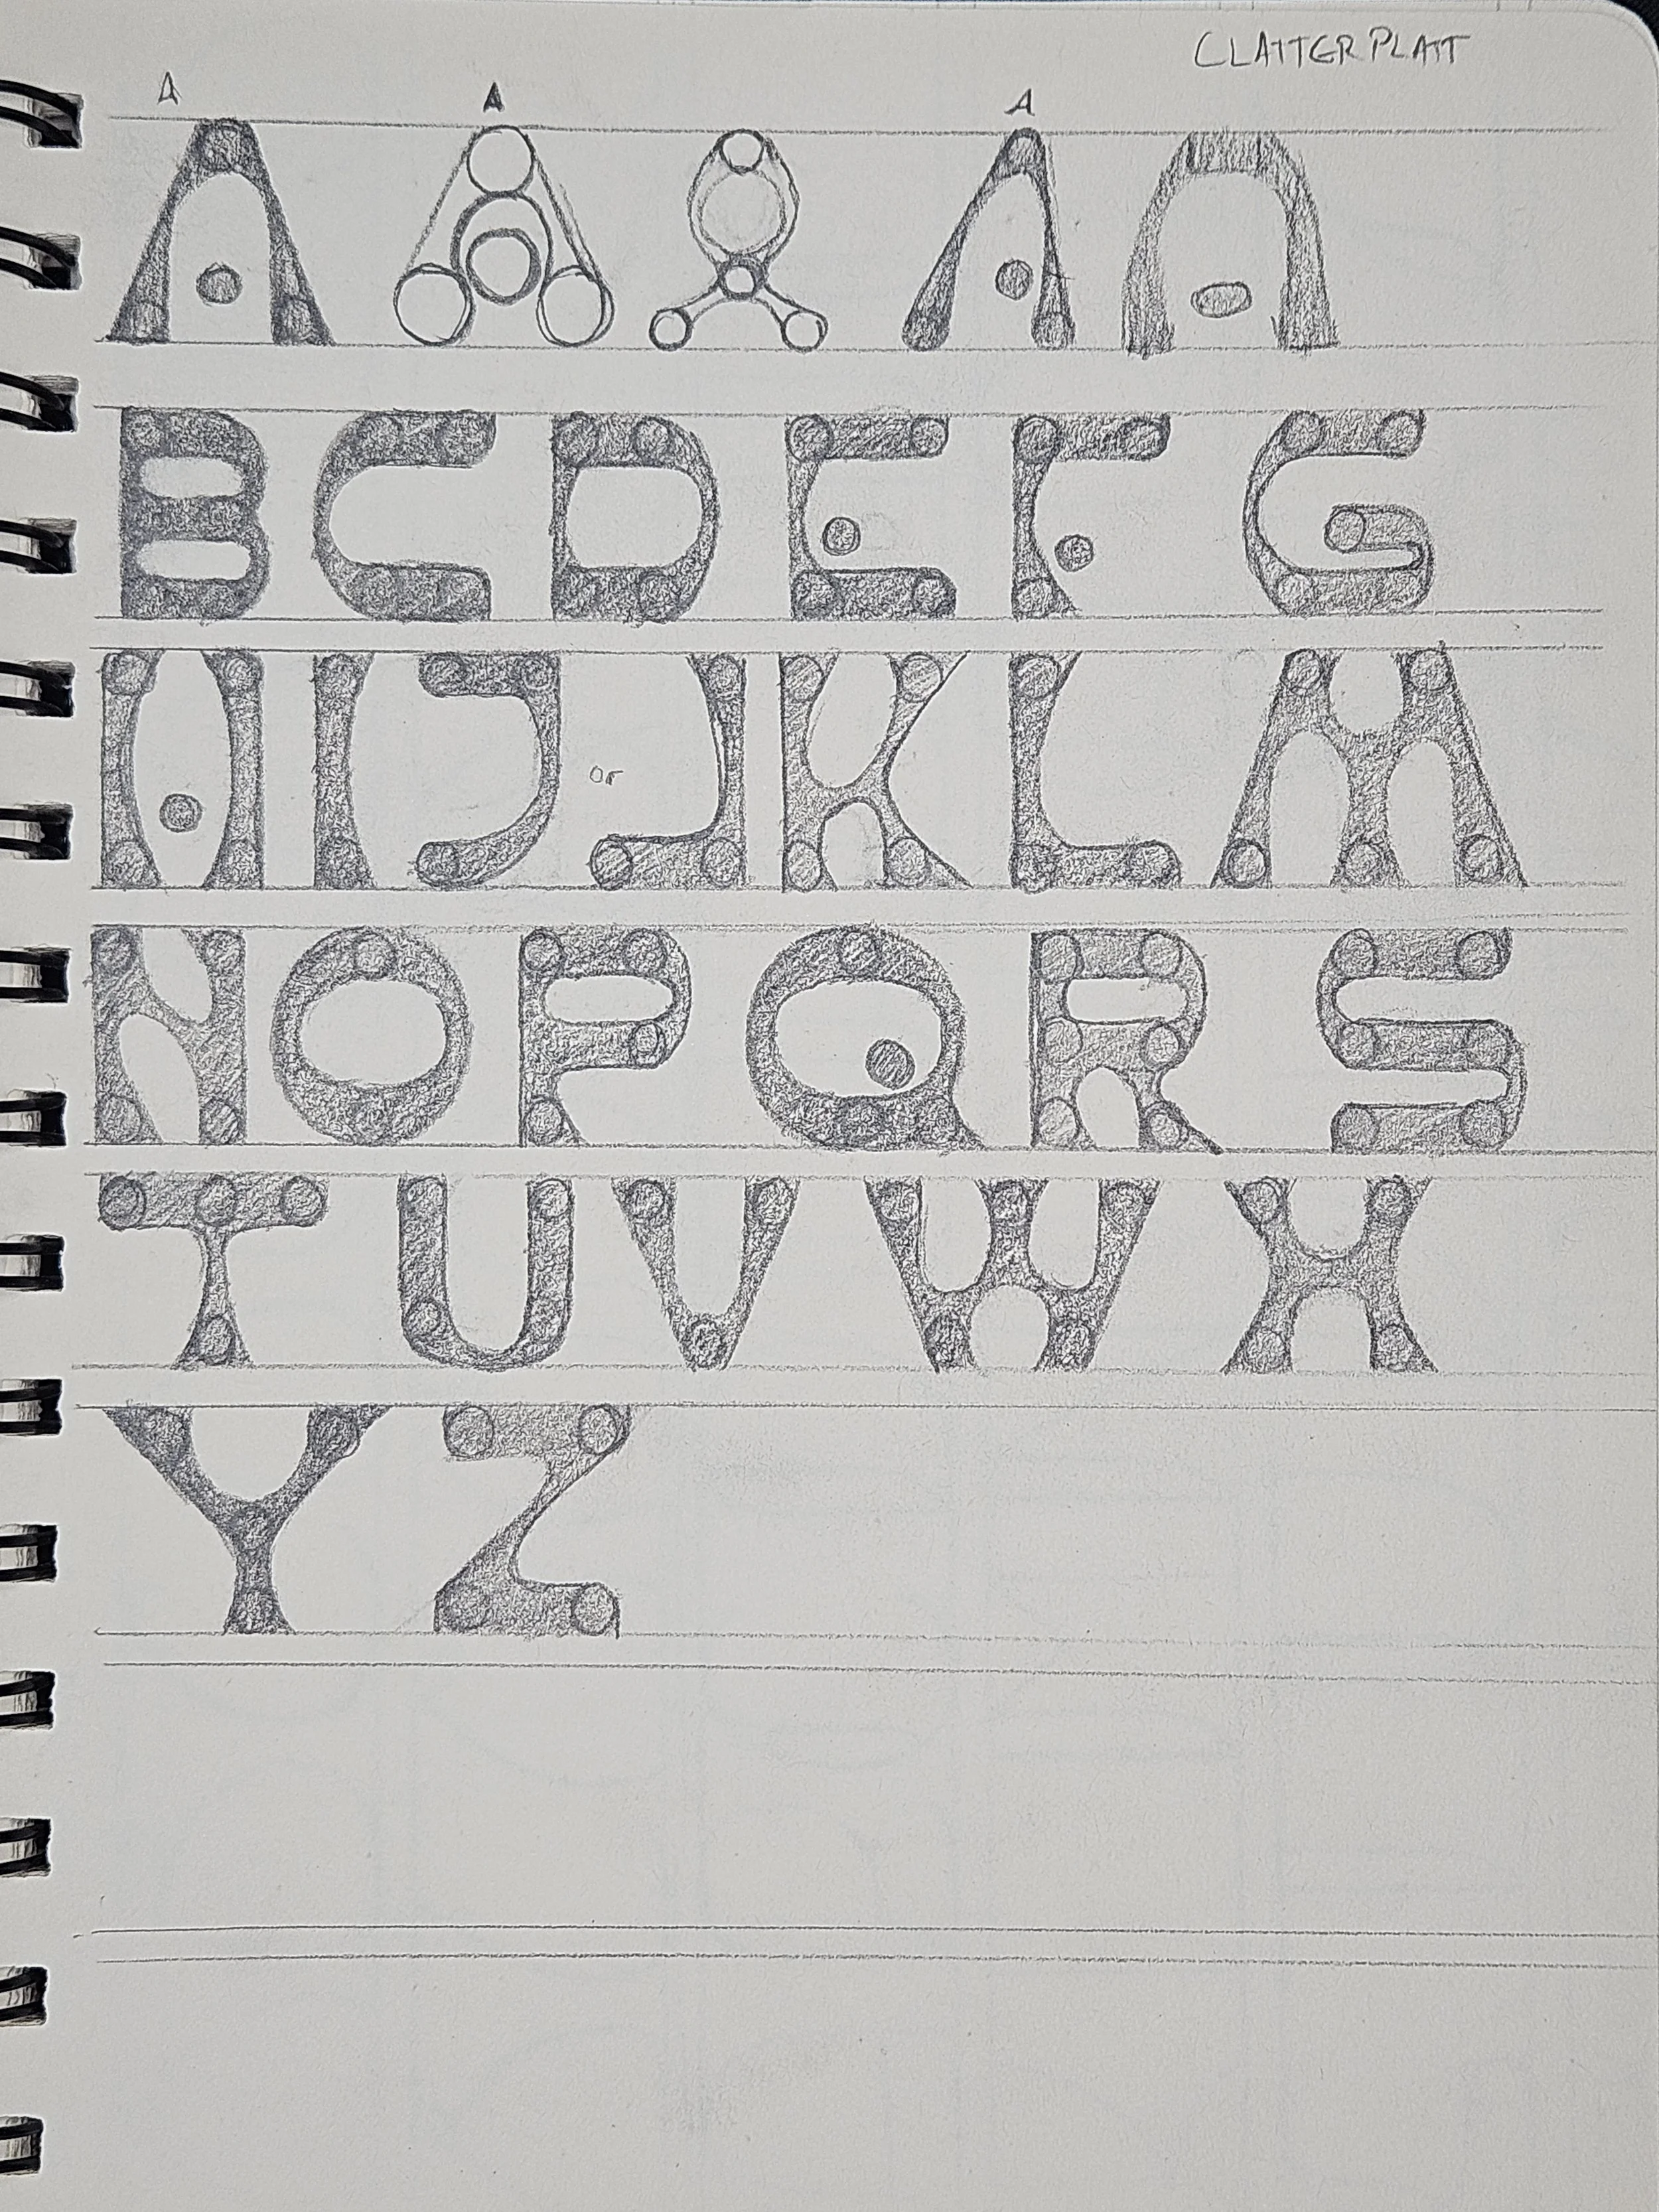 CLATTERPLATT
A A A
A A A A A
B C D E F G
H I J or J K L M
N O P Q R S
T U V W X
Y Z